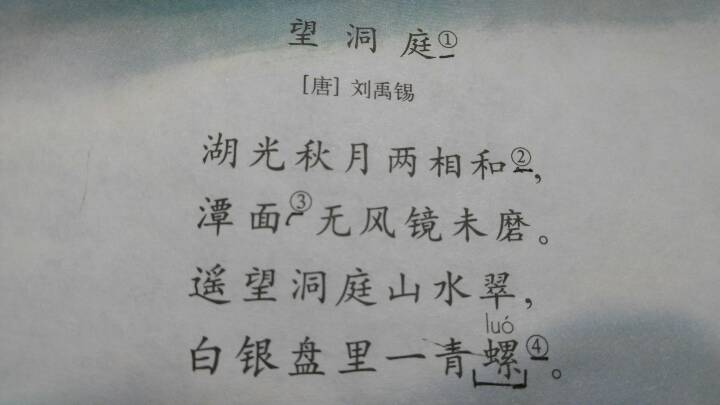 望洞庭①
[唐] 刘禹锡
湖光秋月两相和②，
潭面③无风镜未磨。
遥望洞庭山水翠，
luó
白银盘里一青螺④。